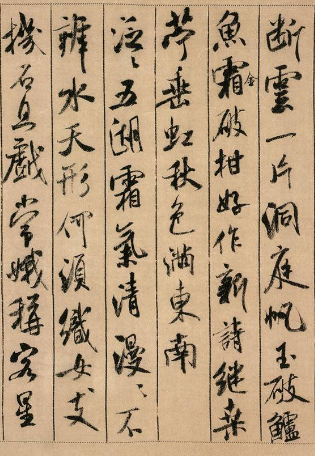 断雲一片洞庭帆玉破鱸
魚霜金破柑好作新詩継桑
苧垂虹秋色滿東南
泛〻五湖霜氣清漫〻不
辨水天形何須織女支
機石且戲常娥稱客星